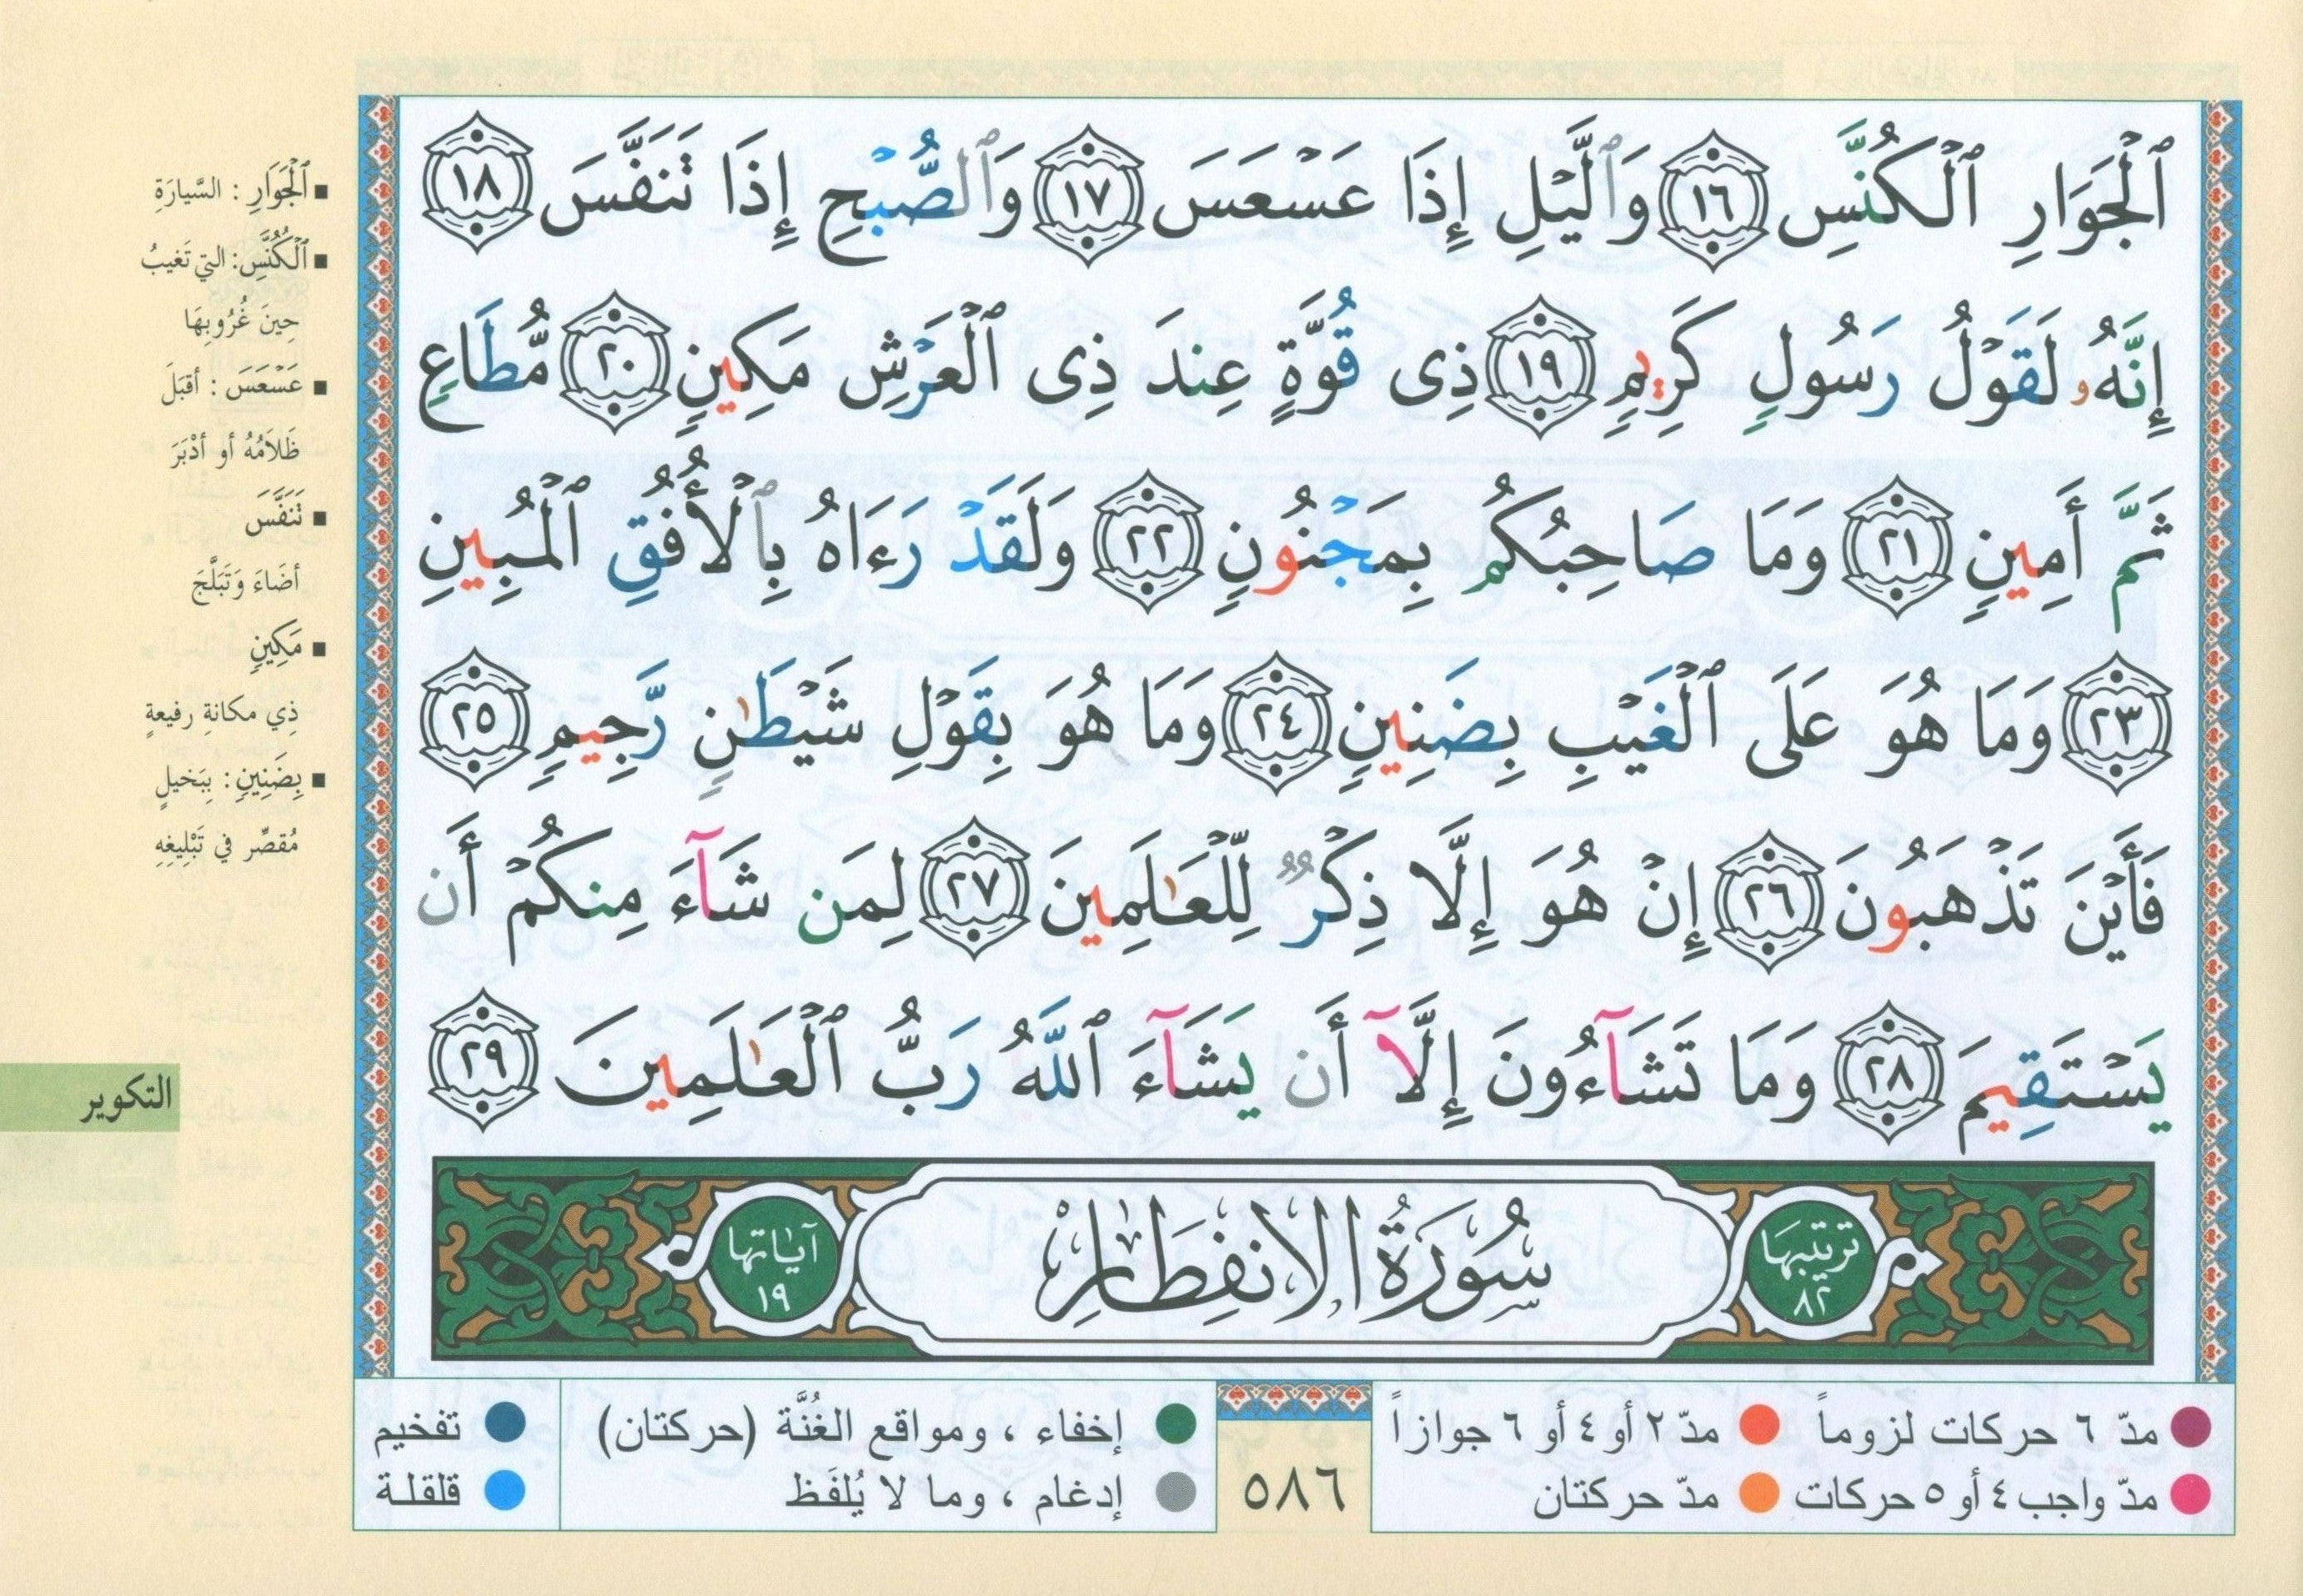 ٱلْجَوَارِ ٱلْكُنَّسِ ١٦ وَٱلَّيْلِ إِذَا عَسْعَسَ ١٧ وَٱلصُّبْحِ إِذَا تَنَفَّسَ ١٨
إِنَّهُۥ لَقَوْلُ رَسُولٍ كَرِيمٍ ١٩ ذِى قُوَّةٍ عِندَ ذِى ٱلْعَرْشِ مَكِينٍ ٢٠ مُّطَاعٍ
ثَمَّ أَمِينٍ ٢١ وَمَا صَاحِبُكُم بِمَجْنُونٍ ٢٢ وَلَقَدْ رَءَاهُ بِٱلْأُفُقِ ٱلْمُبِينِ
٢٣ وَمَا هُوَ عَلَى ٱلْغَيْبِ بِضَنِينٍ ٢٤ وَمَا هُوَ بِقَوْلِ شَيْطَٰنٍ رَّجِيمٍ ٢٥
فَأَيْنَ تَذْهَبُونَ ٢٦ إِنْ هُوَ إِلَّا ذِكْرٌ لِّلْعَٰلَمِينَ ٢٧ لِمَن شَآءَ مِنكُمْ أَن
يَسْتَقِيمَ ٢٨ وَمَا تَشَآءُونَ إِلَّآ أَن يَشَآءَ ٱللَّهُ رَبُّ ٱلْعَٰلَمِينَ ٢٩
ترتيبها ٨٢ سُورَةُ الانفِطَارِ آياتها ١٩
■ ٱلْجَوَارِ : السَّيارَةِ
■ ٱلْكُنَّسِ : التي تَغيبُ
حِينَ غُرُوبِهَا
■ عَسْعَسَ : أقبَلَ
ظَلاَمُهُ أو أدْبَرَ
■ تَنَفَّسَ
أضَاءَ وَتَبَلَّجَ
■ مَكِينٍ
ذِي مكانةٍ رفيعةٍ
■ بِضَنِينٍ : بِبَخيلٍ
مُقصِّر في تَبْلِيغِهِ
التكوير
مدّ ٦ حركات لزوماً مدّ ٢ أو ٤ أو ٦ جوازاً
مدّ واجب ٤ أو ٥ حركات مدّ حركتان
٥٨٦
إخفاء ، ومواقع الغُنَّة (حركتان) تفخيم
إدغام ، وما لا يُلفَظ قلقلة